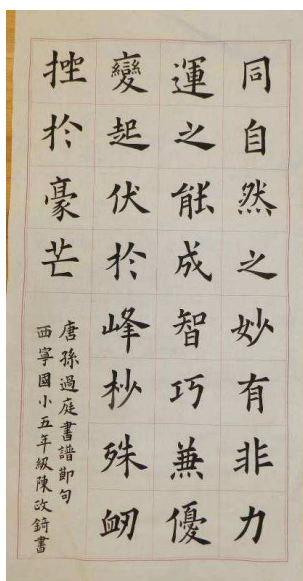 同自然之妙有非力
運之能成智巧兼優
變起伏於峰杪殊衂
挫於豪芒
唐孫過庭書譜節句
西寧國小五年級陳政錡書